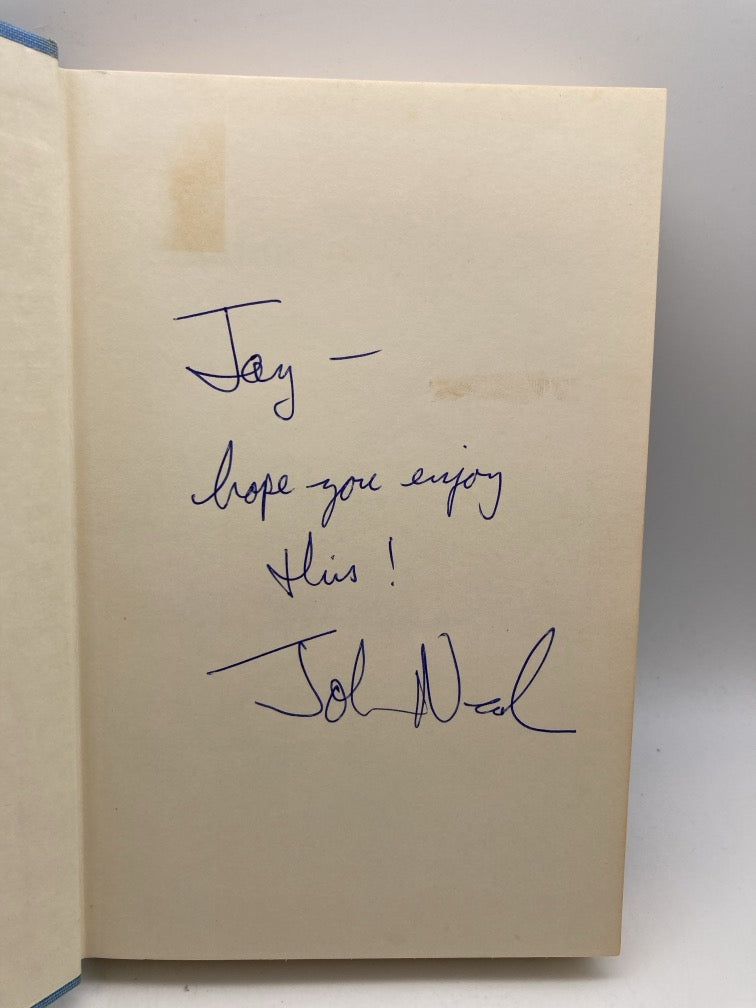 Jay —
hope you enjoy
this!
John Neal